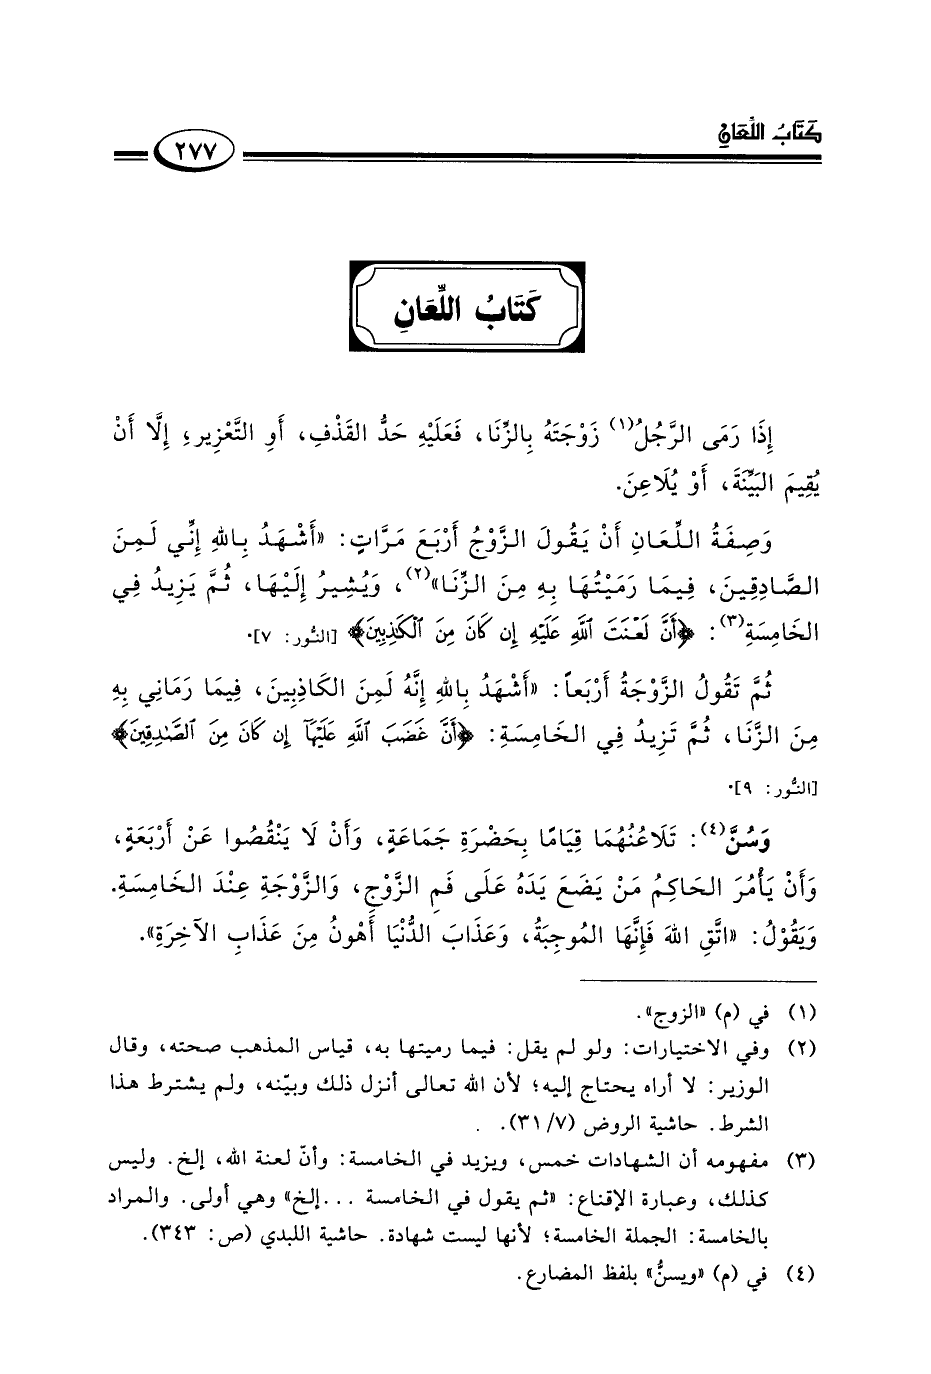 كَتَابُ اللِّعَانِ
٢٧٧
كَتَابُ اللِّعَانِ
إِذَا رَمَى الرَّجُلُ(١) زَوْجَتَهُ بِالزِّنَا، فَعَلَيْهِ حَدُّ القَذْفِ، أَوِ التَّعْزِيرِ؛ إِلَّا أَنْ
يُقِيمَ البَيِّنَةَ، أَوْ يُلَاعِنَ.
وَصِفَةُ اللِّعَانِ أَنْ يَقُولَ الزَّوْجُ أَرْبَعَ مَرَّاتٍ: «أَشْهَدُ بِاللهِ إِنِّي لَمِنَ
الصَّادِقِينَ، فِيمَا رَمَيْتُهَا بِهِ مِنَ الزِّنَا»(٢)، وَيُشِيرُ إِلَيْهَا، ثُمَّ يَزِيدُ فِي
الخَامِسَةِ(٣): ﴿أَنَّ لَعْنَتَ ٱللَّهِ عَلَيْهِ إِن كَانَ مِنَ ٱلْكَٰذِبِينَ﴾ [النُّور: ٧].
ثُمَّ تَقُولُ الزَّوْجَةُ أَرْبَعاً: «أَشْهَدُ بِاللهِ إِنَّهُ لَمِنَ الكَاذِبِينَ، فِيمَا رَمَانِي بِهِ
مِنَ الزَّنَا، ثُمَّ تَزِيدُ فِي الخَامِسَةِ: ﴿أَنَّ غَضَبَ ٱللَّهِ عَلَيْهَآ إِن كَانَ مِنَ ٱلصَّٰدِقِينَ﴾
[النُّور: ٩].
وَسُنَّ(٤): تَلَاعُنُهُمَا قِيَامًا بِحَضْرَةِ جَمَاعَةٍ، وَأَنْ لَا يَنْقُصُوا عَنْ أَرْبَعَةٍ،
وَأَنْ يَأْمُرَ الحَاكِمُ مَنْ يَضَعَ يَدَهُ عَلَى فَمِ الزَّوْجِ، وَالزَّوْجَةِ عِنْدَ الخَامِسَةِ.
وَيَقُوْلُ: «اتَّقِ اللهَ فَإِنَّهَا المُوجِبَةُ، وَعَذَابَ الدُّنْيَا أَهْونُ مِنَ عَذَابِ الآخِرَةِ».
(١) في (م) «الزوج».
(٢) وفي الاختيارات: ولو لم يقل: فيما رميتها به، قياس المذهب صحته، وقال
الوزير: لا أراه يحتاج إليه؛ لأن الله تعالى أنزل ذلك وبيّنه، ولم يشترط هذا
الشرط. حاشية الروض (٣١/٧).
(٣) مفهومه أن الشهادات خمس، ويزيد في الخامسة: وأنّ لعنة الله، إلخ. وليس
كذلك، وعبارة الإقناع: «ثم يقول في الخامسة ...إلخ» وهي أولى. والمراد
بالخامسة: الجملة الخامسة؛ لأنها ليست شهادة. حاشية اللبدي (ص: ٣٤٣).
(٤) في (م) «ويسنُّ» بلفظ المضارع.